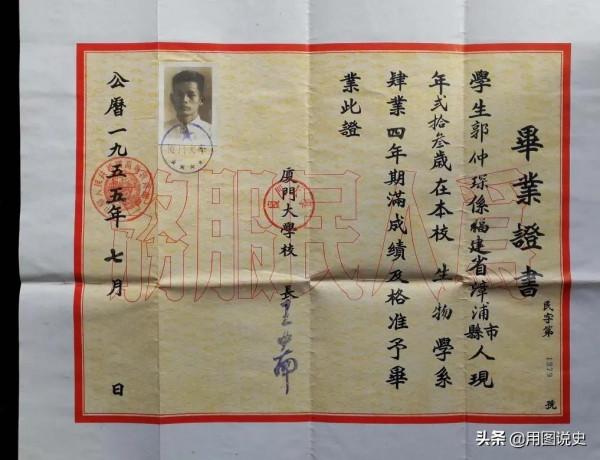 畢業證書
民字第 1979 號
學生郭仲琛係福建省漳浦市縣人現
年貳拾叁歲在本校生物學系
肄業四年期滿成績及格准予畢
業此證
廈門大學校長王亞南
公曆一九五五年七月 日
為人民服務
头条 @用图说史